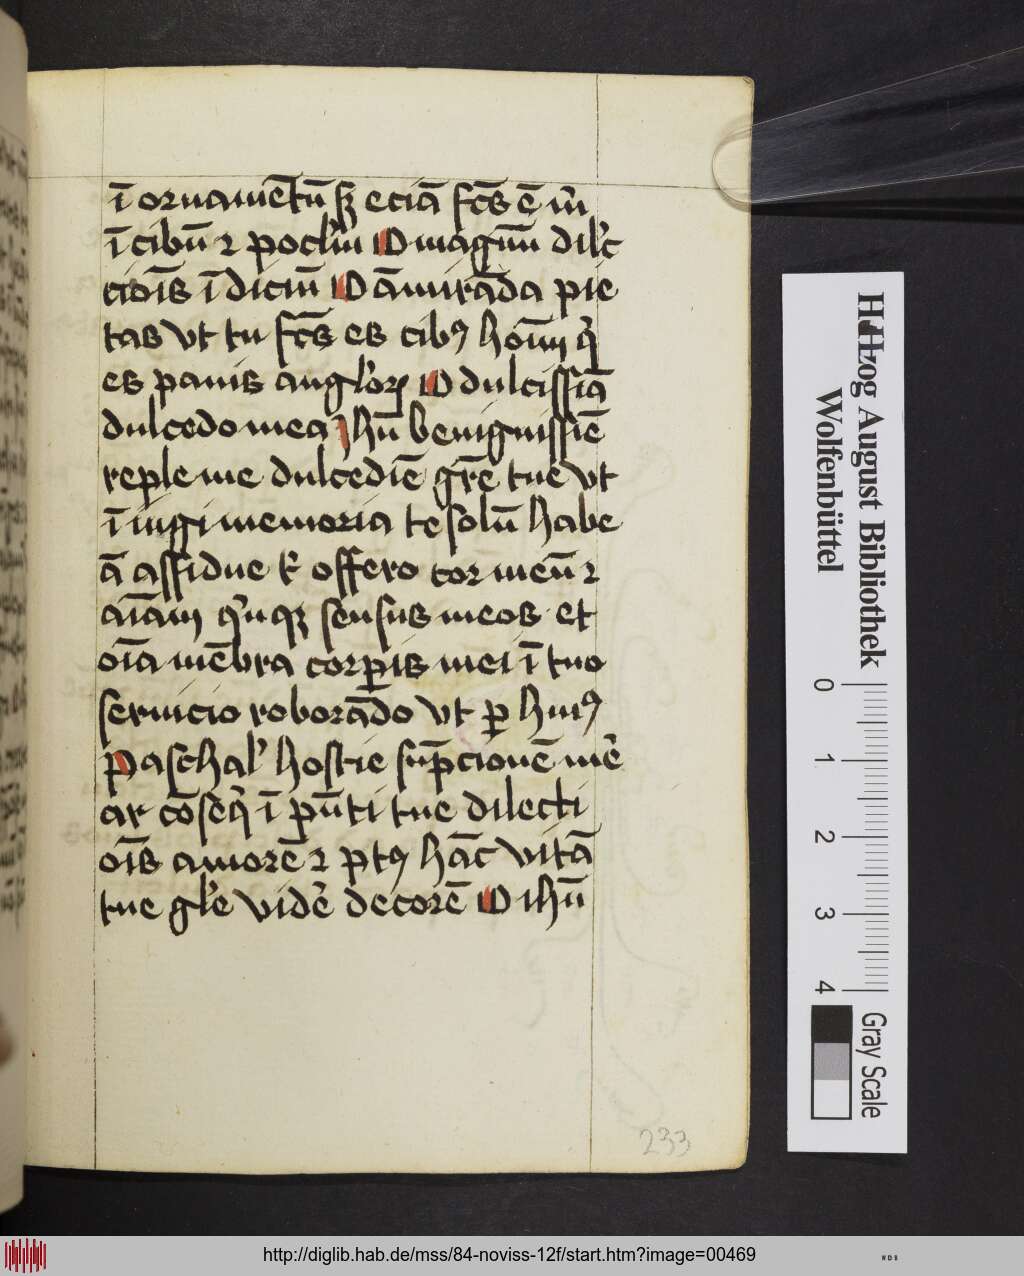 ī ornamētū sꝫ eciā fc̄s ē in̄
ī cibū ⁊ pocl̓m O magnū dil̓c
cioīs ī diciū O āmirāda pie
tas vt tu fc̄s es cibꝰ hoīm q̓
es panis angl̓oꝝ O dulcissīa
dulcedo mea ihū benignissīe
reple me dulcedīe gr̄e tue vt
ī iugi memoria te solū habe
ā assidue t̓ offero cor meū ⁊
aīam q̓nqꝫ sensus meos et
oīa mēbra corꝑis mei ī tuo
seruicio roborādo vt ꝑ huiꝰ
Paschal̓ hostie sūpcionē me̓
ar cōseq̓ ī p̄nti tue dilecti
oīs amorē ⁊ ptꝰ hāc vitā
tue gl̓e vide̓ decorē O ihū
233
Herzog August Bibliothek
Wolfenbüttel
0 1 2 3 4
Gray Scale
http://diglib.hab.de/mss/84-noviss-12f/start.htm?image=00469